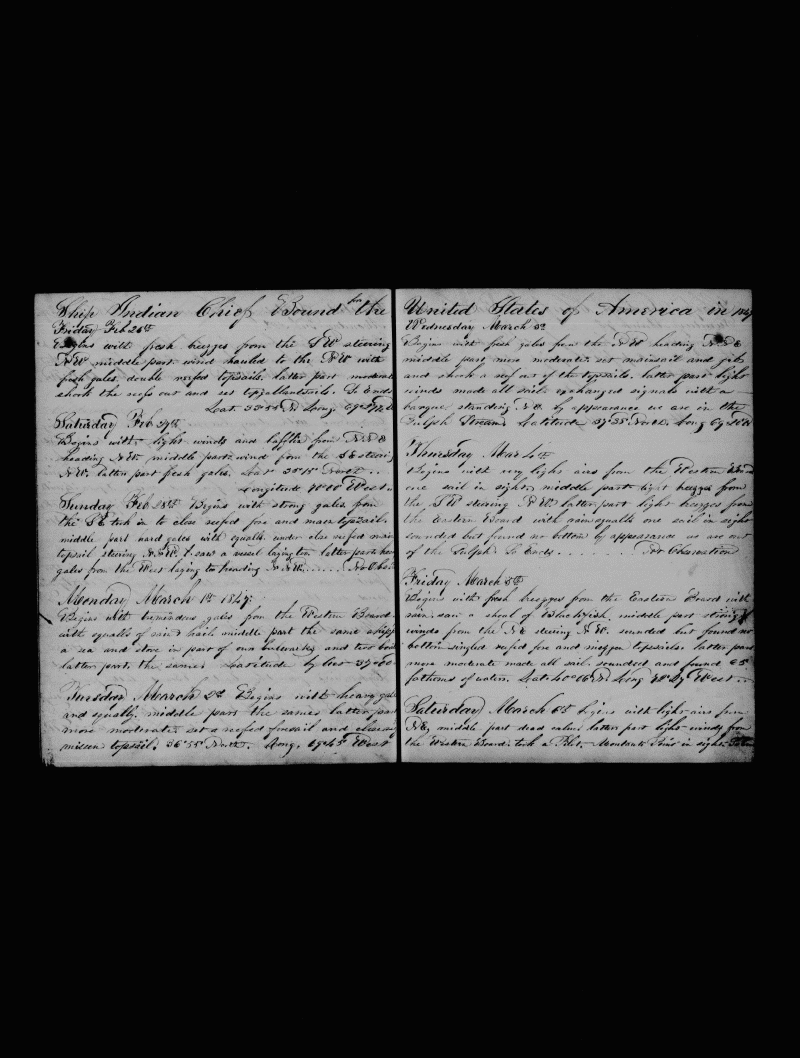 Ship Indian Chief Bound for the
Friday Feb 26th
Begins with fresh breezes from the SW steering
N.W. middle part wind hauled to the NW with
fresh gales. double reefed topsails. latter part moderate
shook the reefs out and set topgallantsails. So Ends
Lat. 33°55 N Long 69°
Saturday Feb 27th
Begins with light winds and from N.N.E
heading N.W. middle part wind from the SE steering
N.W. latter part fresh gales. Lat North
Longitude 70°00 West
Sunday Feb 28th Begins with strong gales from
the SE took in to close reefed fore and main topsail.
middle part hard gales with squalls under close reefed main
topsail steering N.N.W. saw a vessel laying too latter part heavy
gales from the West laying too heading N.N.W. ..... No Obs
Monday March 1st 1847
Begins with tremendous gales from the Western Board.
with squalls of rain & hail middle part the same shipp
a sea and stove in part of our bulwarks and two boats
latter part the same. Latitude by
Tuesday March 2d Begins with heavy gales
and squally. middle part the same latter part
more moderate set a reefed foresail and close reefed
mizzen topsail. 36°55 North. Long. 69°45 West
United States of America in 1847
Wednesday March 3d
Begins with fresh gales from the N.W heading N.N.E
middle part more moderate set mainsail and jib
and shook a reef out of the topsails. latter part light
winds made all sail. exchanged signals with a
barque standing N.E. by appearance we are in the
Gulph Stream Latitude 37°35 North. Long 69°
Thursday Mar 4th
Begins with very light airs from the Western Board
one sail in sight. middle part light breezes from
the SW steering N.W. latter part light breezes from
the Eastern Board with rain squalls one sail in sight
sounded but found no bottom by appearance we are out
of the Gulph. So Ends. ........ No Observation
Friday March 5th
Begins with fresh breezes from the Eastern Board with
rain. saw a shoal of Blackfish. middle part strong
winds from the NE steering N.W. sounded but found no
bottom. single reefed fore and mizzen topsails. latter part
more moderate made all sail. sounded and found 65
fathoms of water. Lat. 40°06 N Long West
Saturday March 6th begins with light airs from
N.E. middle part dead calm. latter part light winds from
the Western Board. took a Pilot. Montauk Point in sight.